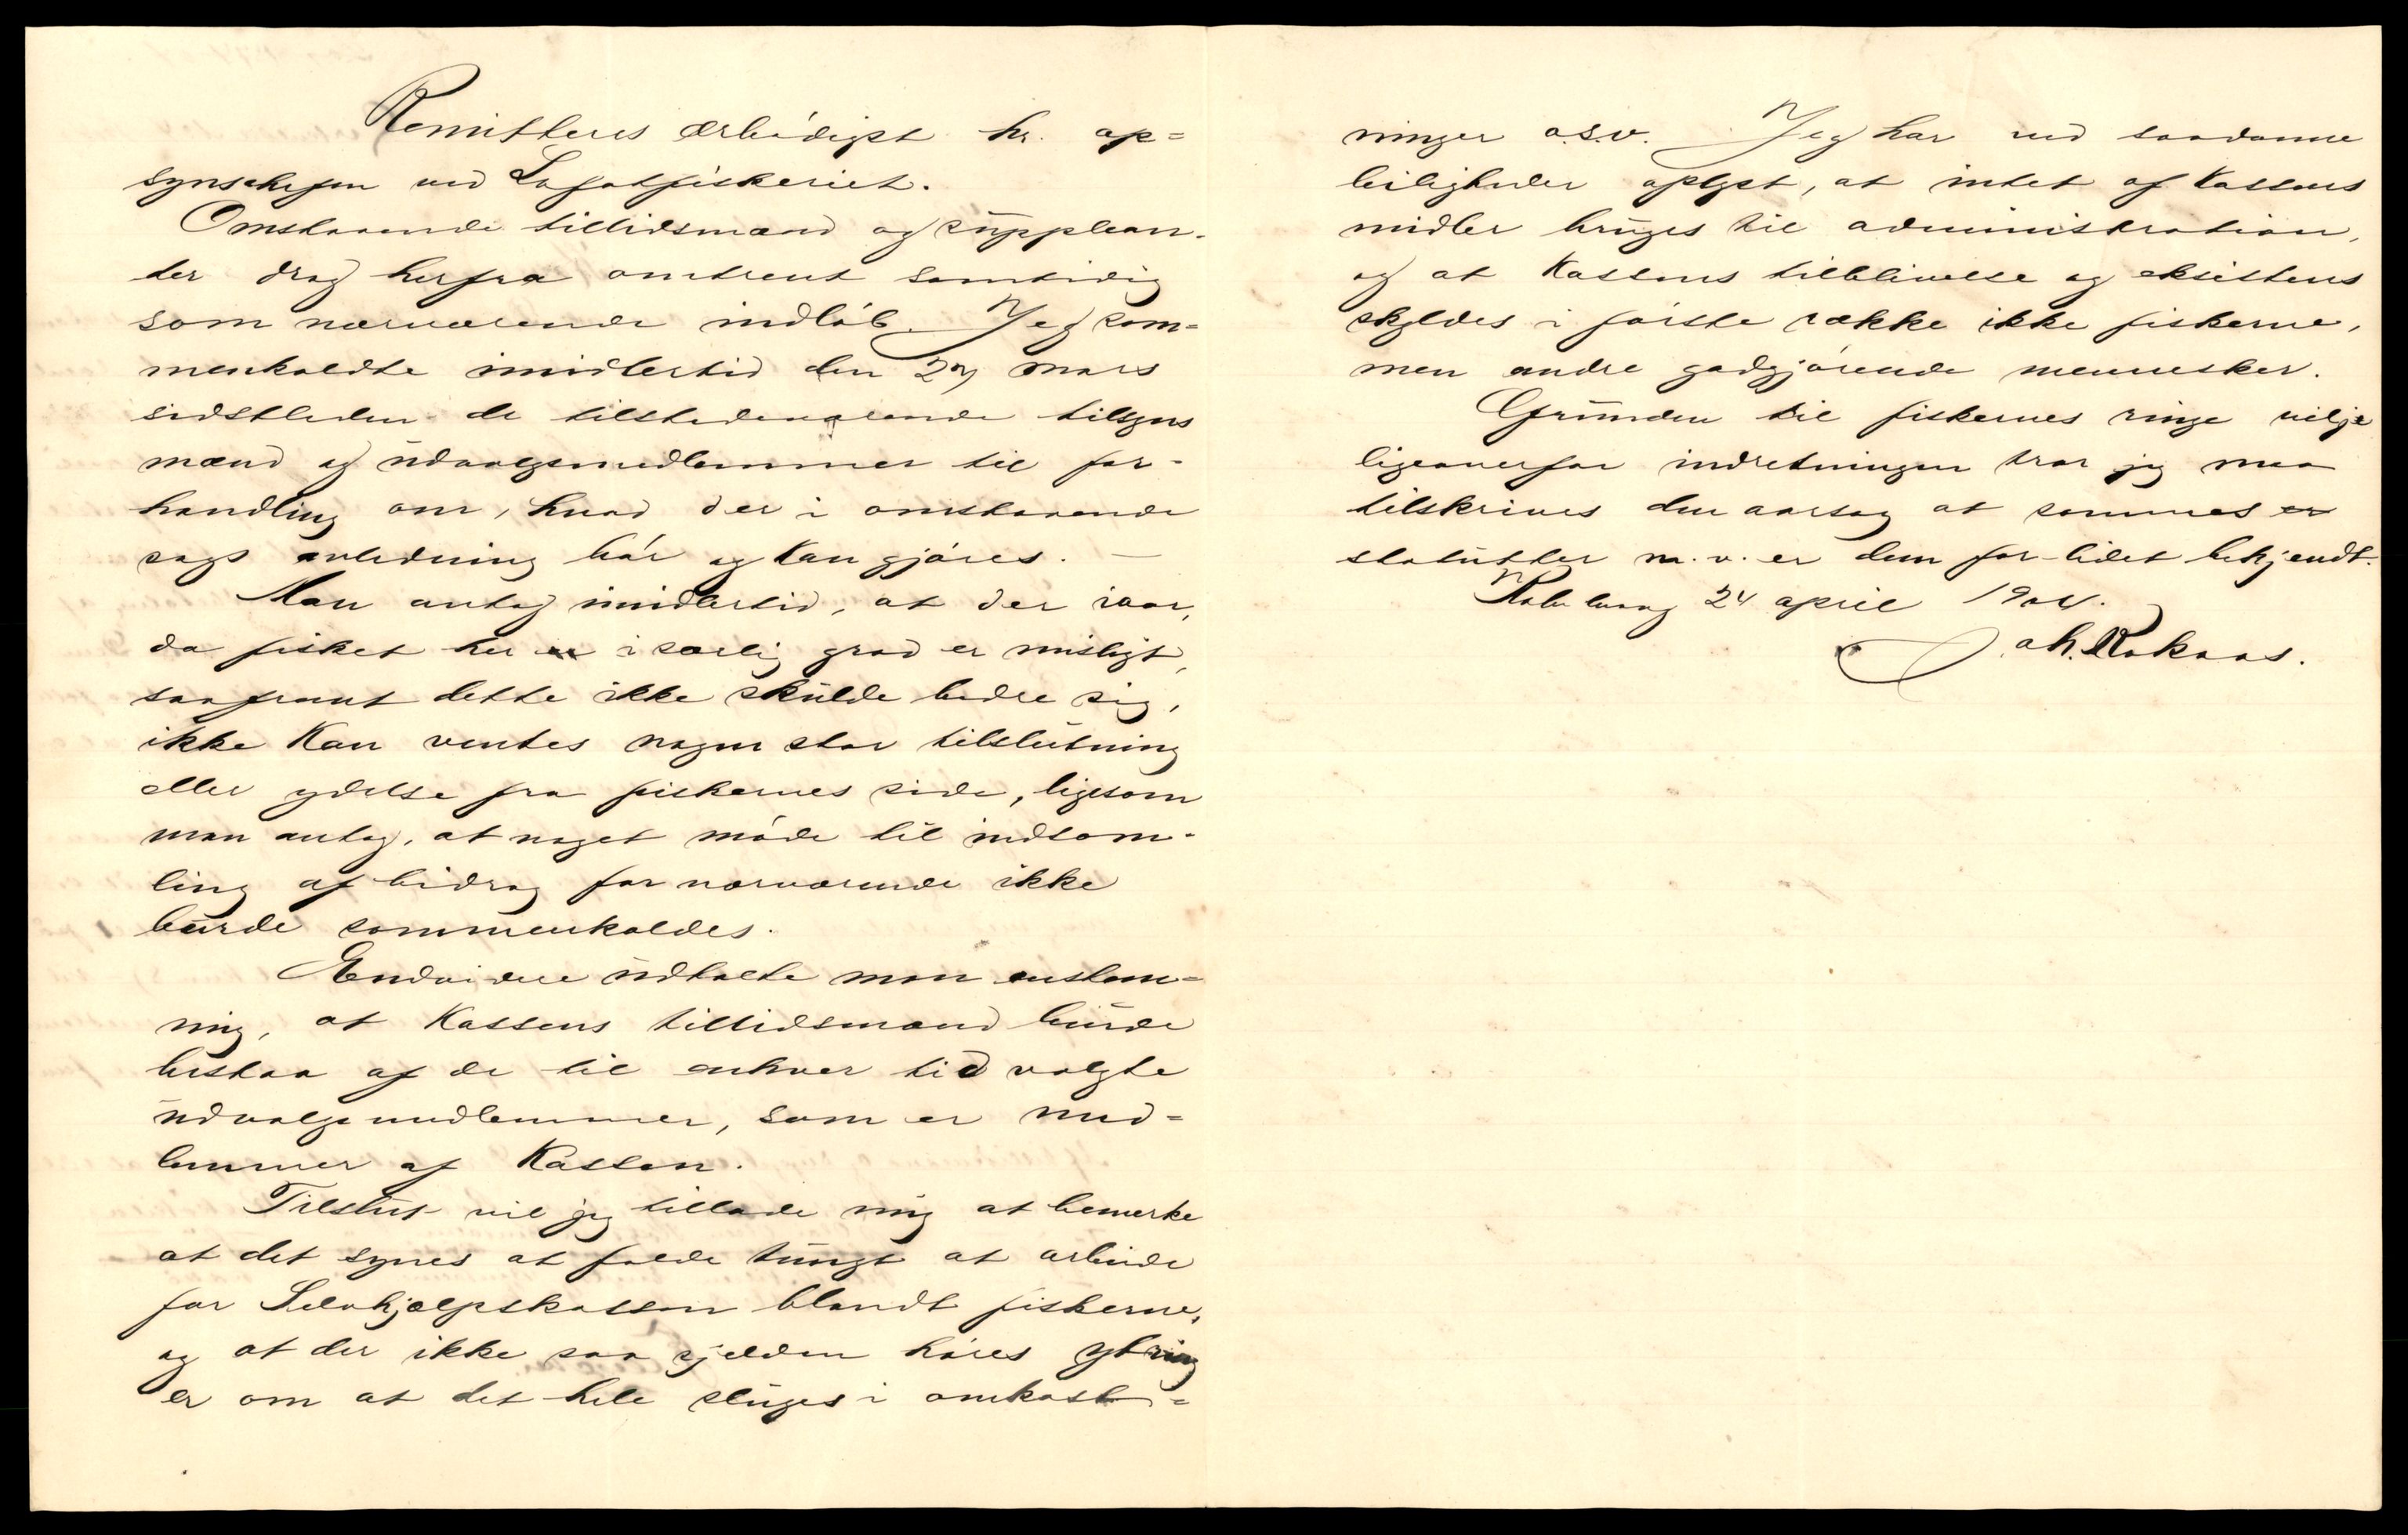 Remitteres ærbødigst hr. op=
synschefen ved Lofotfiskeriet.
Omstaaende tillidsmænd og supplean-
ter drog herfra omtrent samtidig
som nærværende indløb. Jeg sam=
menkaldte imidlertid den 27 mars
sidstleden de tilstedeværende tilsyns
mænd og udvalgsmedlemmer til for-
handling om, hvad der i omstaaende
sags anledning bør og kan gjøres. —
Man antog imidlertid, at der iaar,
da fisket her er i særlig grad er misligt,
saafremt dette ikke skulde bedre sig,
ikke kan ventes nogen stor tilslutning
eller ydelse fra fiskernes side, ligesom
man antog, at noget møde til indsam-
ling af bidrag for nærværende ikke
burde sammenkaldes.
Endvidere udtalte man enstem=
mig, at Kassens tillidsmænd burde
bestaa af de til enhver tid valgte
udvalgsmedlemmer, som er med=
lemmer af Kassen.
Tilslut vil jeg tillade mig at bemerke
at det synes at falde tungt at arbeide
for Selvhjælpskassen blandt fiskerne,
og at der ikke saa sjelden høres ytring
er om at det hele sluges i omkost=
ninger o.s.v. Jeg har ved saadanne
leiligheder oplyst, at intet af Kassens
midler bruges til administration,
og at Kassens tilblivelse og eksistens
skyldes i første række ikke fiskerne,
men andre godgjørende mennesker.
Grunden til fiskernes ringe vilje
ligeoverfor indretningen tror jeg maa
tilskrives den aarsag at sammes er
statutter m.v. er dem for lidet bekjendt.
24 april 1904.
Joh. Rokaas.